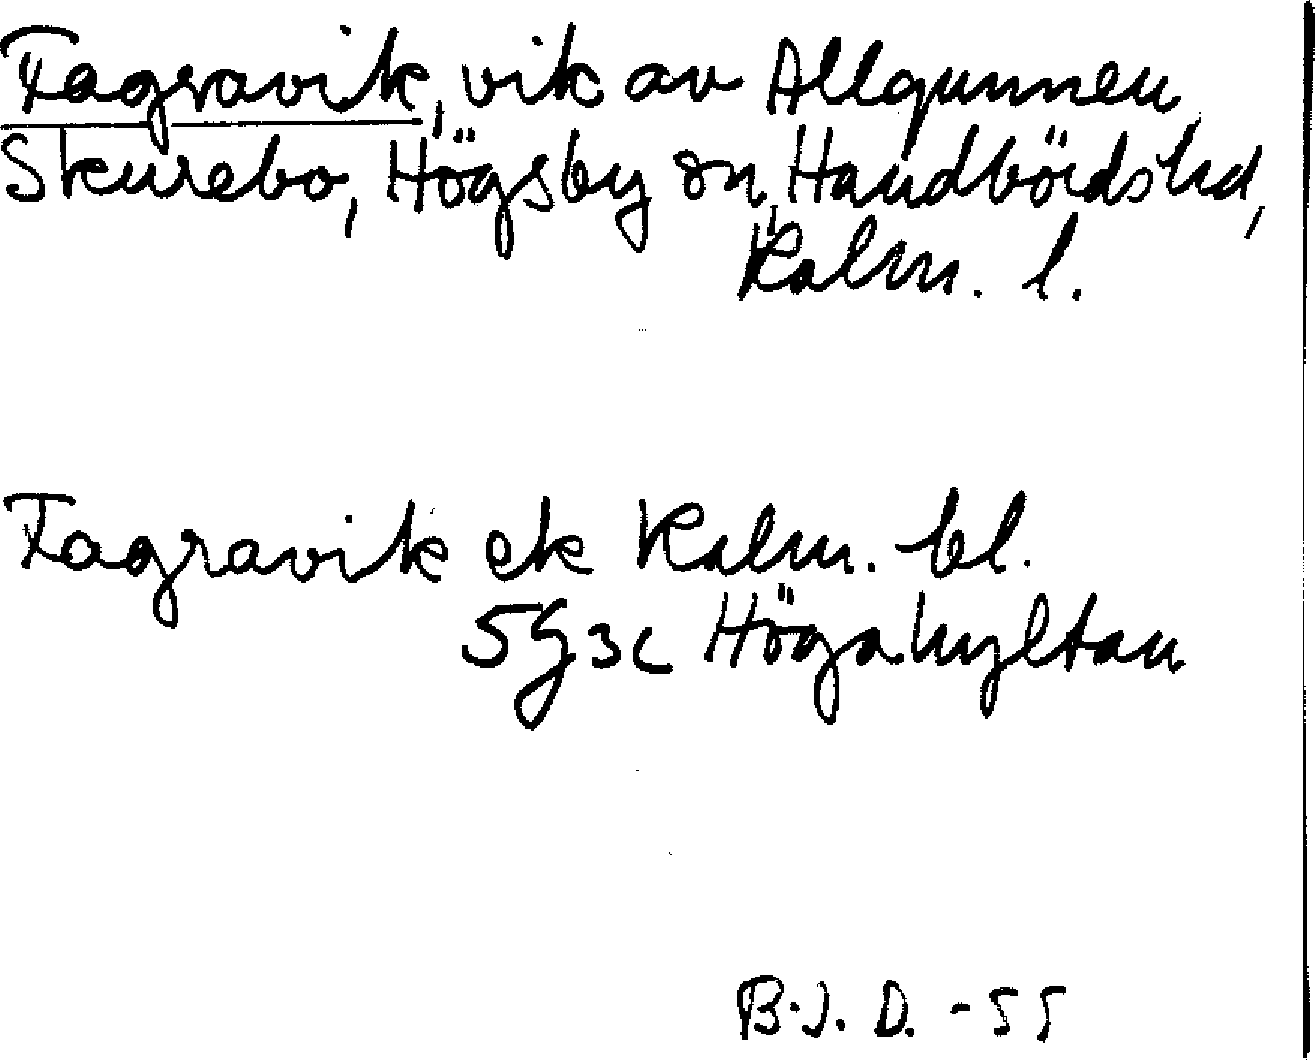 Fagravik, vik av Allgunnen
Skurebo, Högsby sn, Handbörds hd,
Kalm. l.
Fagravik ek Kalm. bl.
5G3c Högahyltan
B.J. D. -55